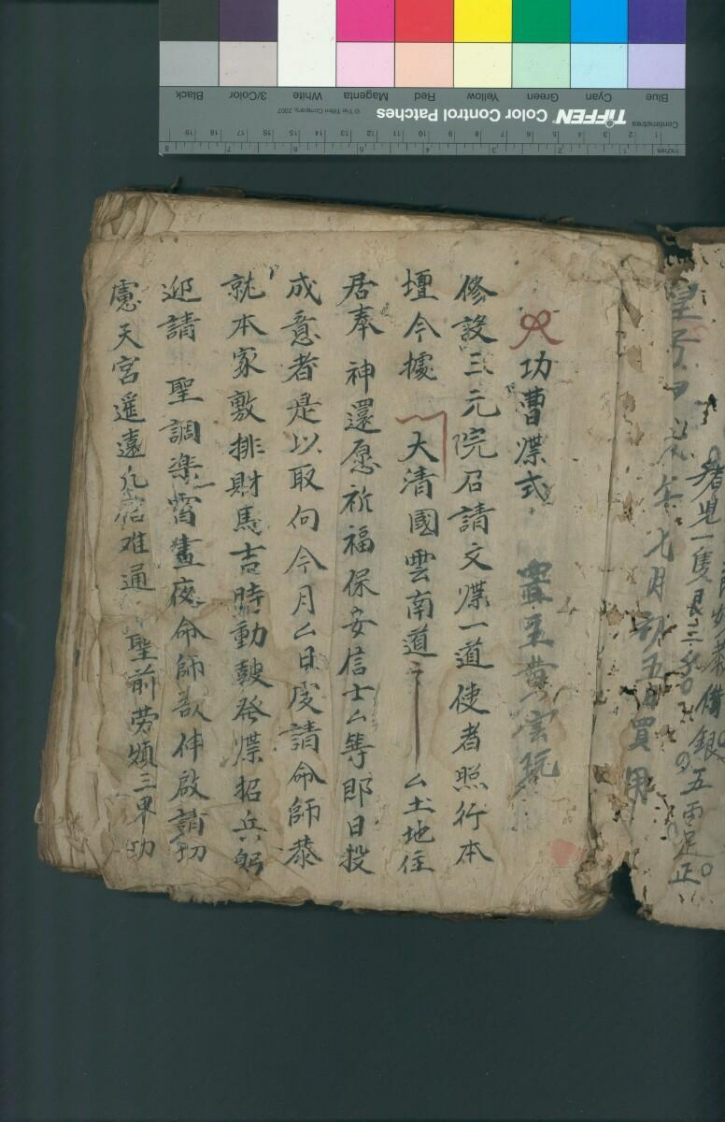 Blue Cyan Green Yellow Red Magenta White 3/Color Black
Centimetres
TIFFEN Color Control Patches © The Tiffen Company, 2007
Inches
年七月初五日買用
猪児一隻
銀五両足正
功曹牒式
修設三元院召請文牒一道使者照行本
壇今據 大清國雲南道 厶土地住
居奉 神還愿祈福保安信士厶等即日投
成意者是以取向今月厶日虔請命師恭
就本家敷排財馬吉時動鼓發牒招兵
迎請 聖調楽 宵晝夜命師 伸啟請切
慮天宮遥遠凡 难通 聖前劳煩三界功